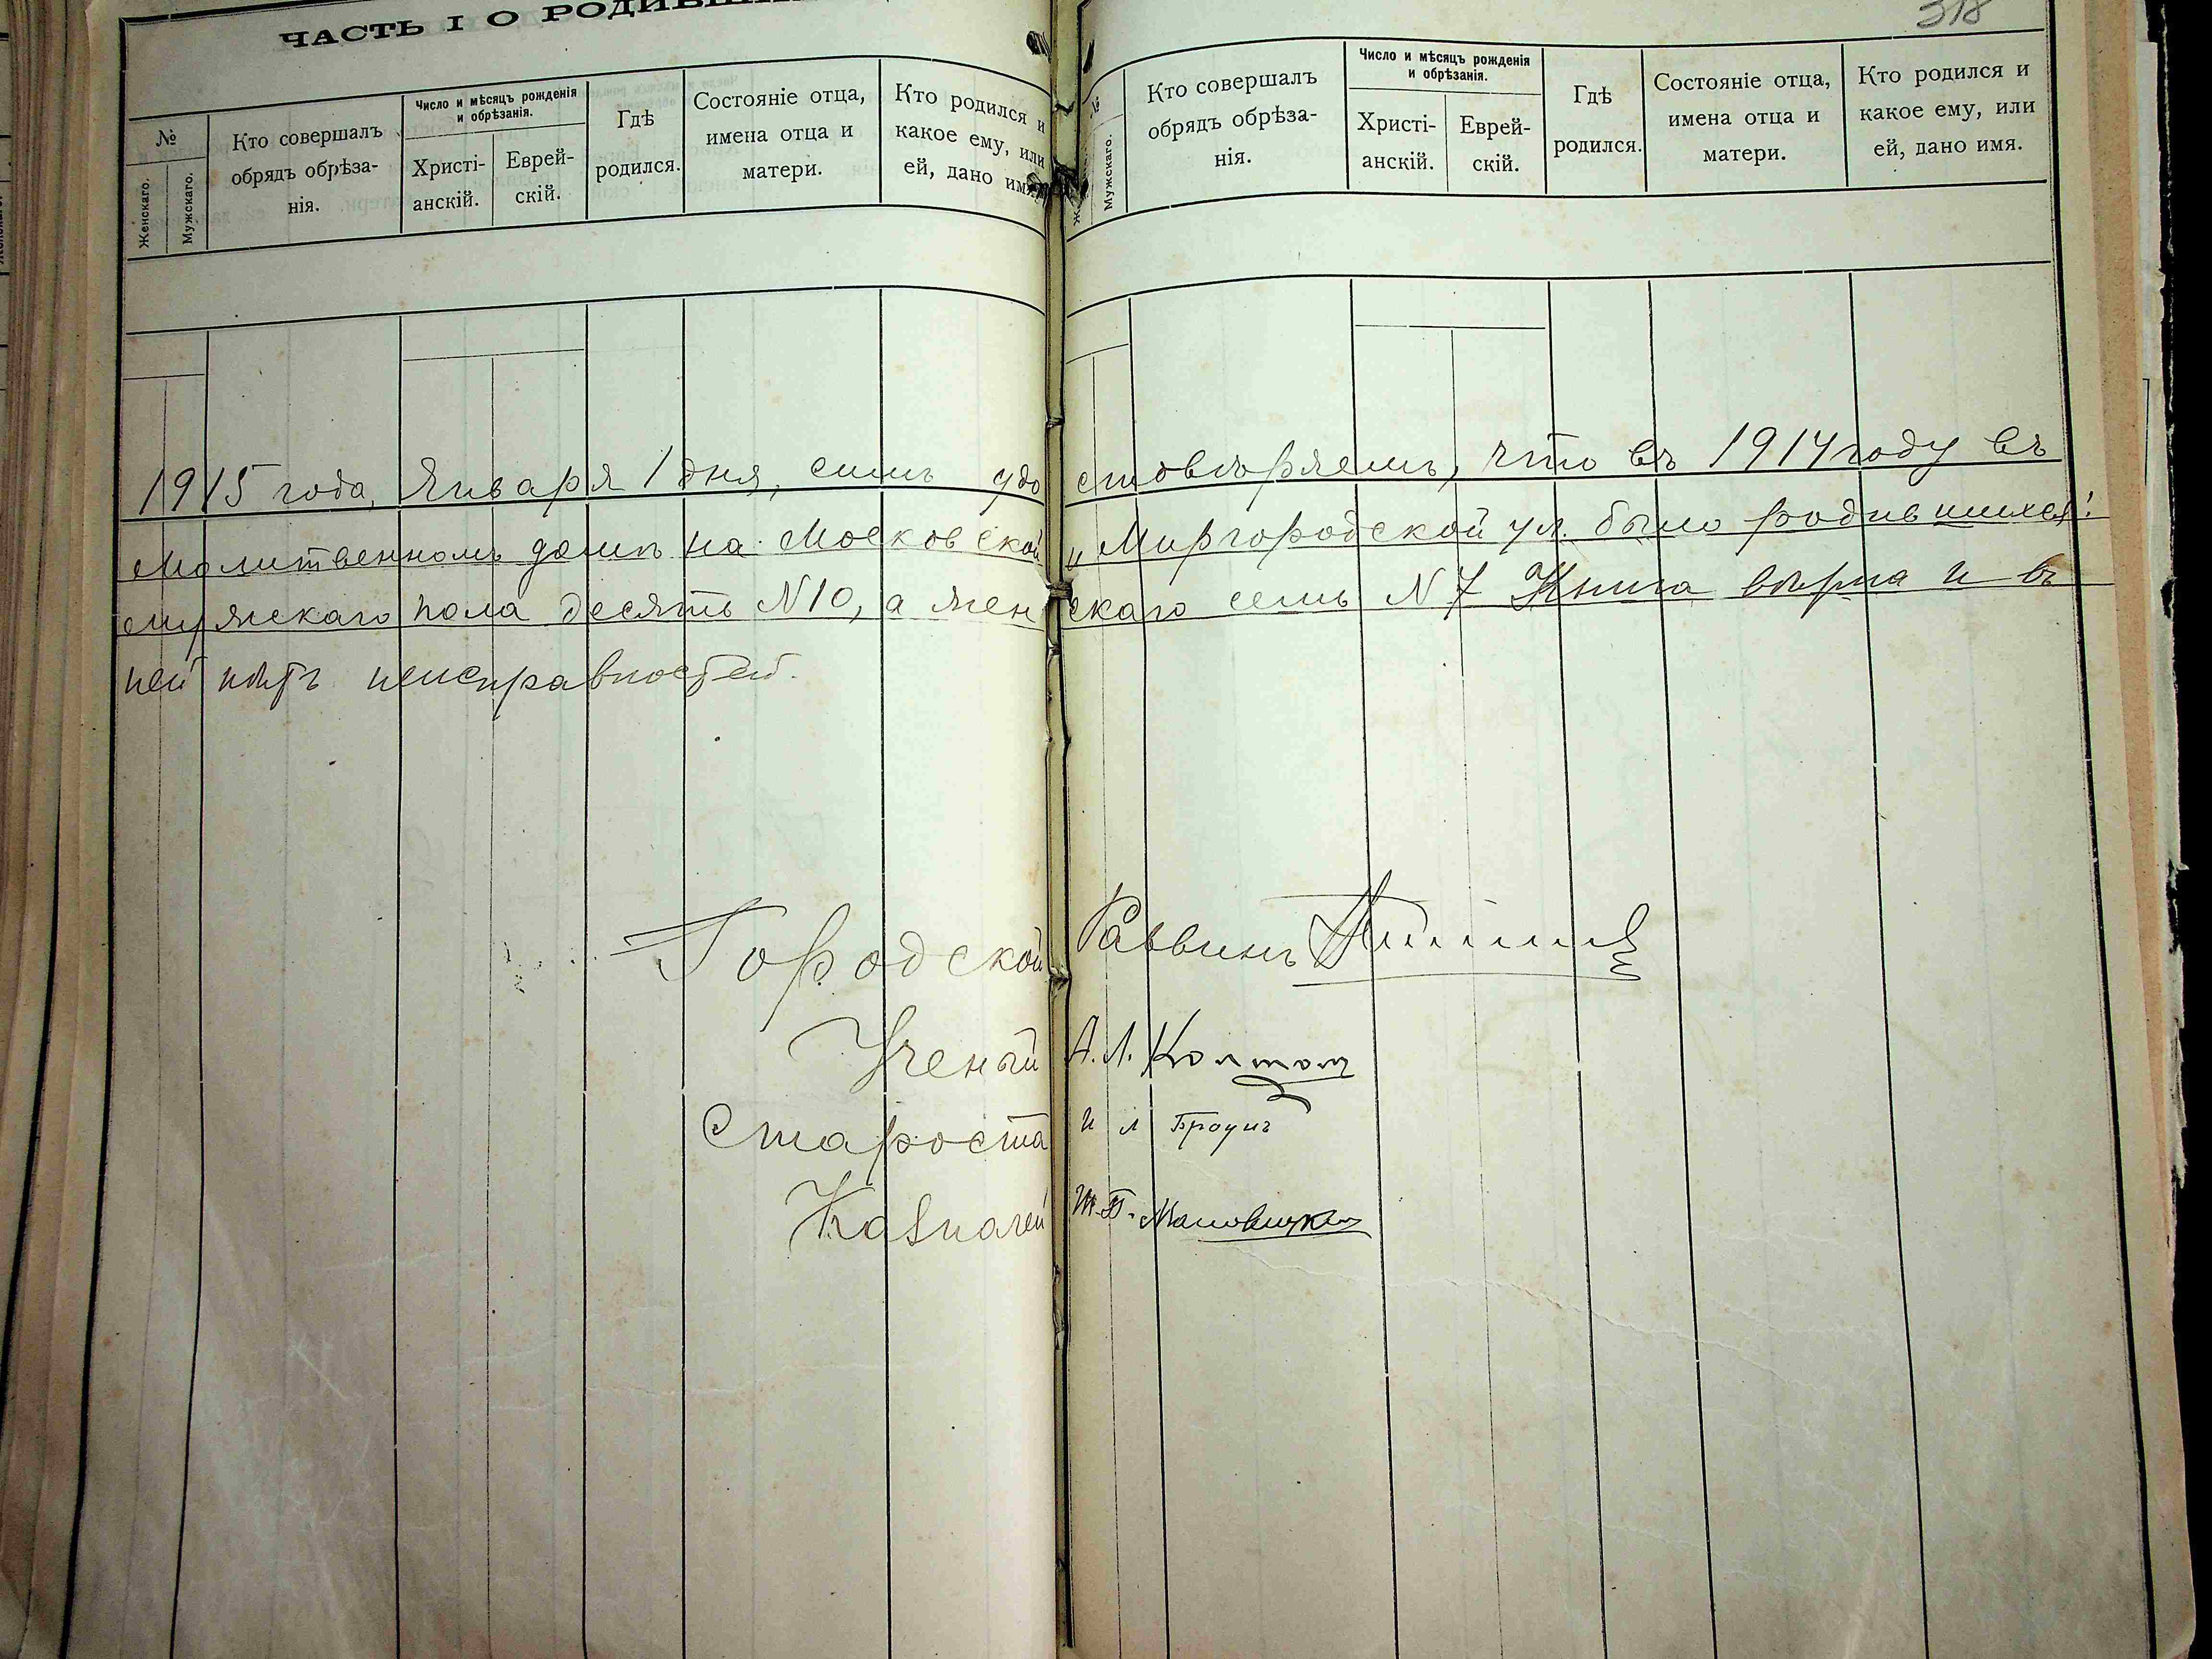 ЧАСТЬ I О РОДИВШИ
318
№
Женскаго.
Мужскаго.
Кто совершалъ
обрядъ обрѣза-
нія.
Число и мѣсяцъ рожденія
и обрѣзанія.
Христі-
анскій.
Еврей-
скій.
Гдѣ
родился.
Состояніе отца,
имена отца и
матери.
Кто родился и
какое ему, или
ей, дано имя.
№
Мужскаго.
Кто совершалъ
обрядъ обрѣза-
нія.
Число и мѣсяцъ рожденія
и обрѣзанія.
Христі-
анскій.
Еврей-
скій.
Гдѣ
родился.
Состояніе отца,
имена отца и
матери.
Кто родился и
какое ему, или
ей, дано имя.
1915 года, Января 1 дня, симъ удостовѣряемъ, что въ 1914 году въ
молитвенномъ домѣ на Московской и Миргородской ул. было родившихся:
мужскаго пола десять N10, а женскаго семь N7 Книга вѣрна и въ
ней нѣтъ неисправностей.
Городской Раввинъ
Ученый А. Л.
Староста И Л Броунъ
Казначей